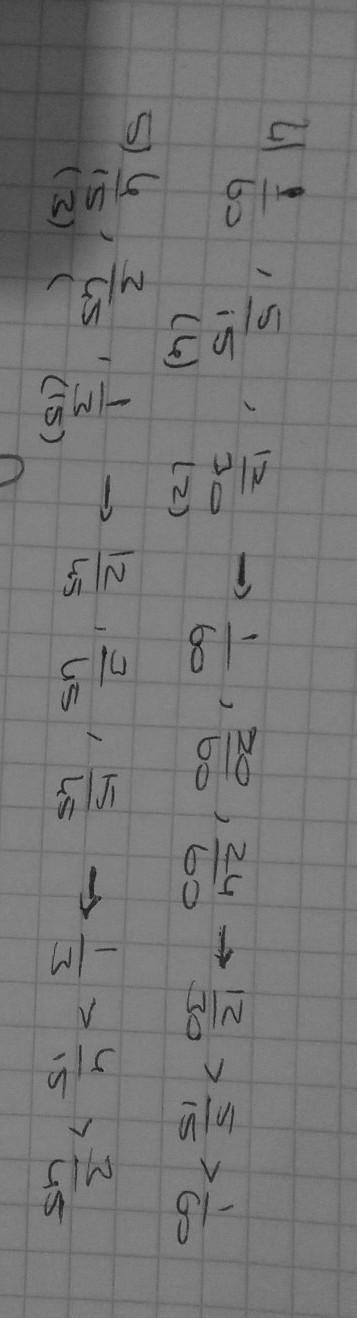 4) 1/60 , 5/15 , 12/30 → 1/60 , 20/60 , 24/60 → 12/30 > 5/15 > 1/60
(4) (2)
5) 4/15 , 2/45 , 1/3 → 12/45 , 2/45 , 15/45 → 1/3 > 4/15 > 2/45
(3) ( (15)